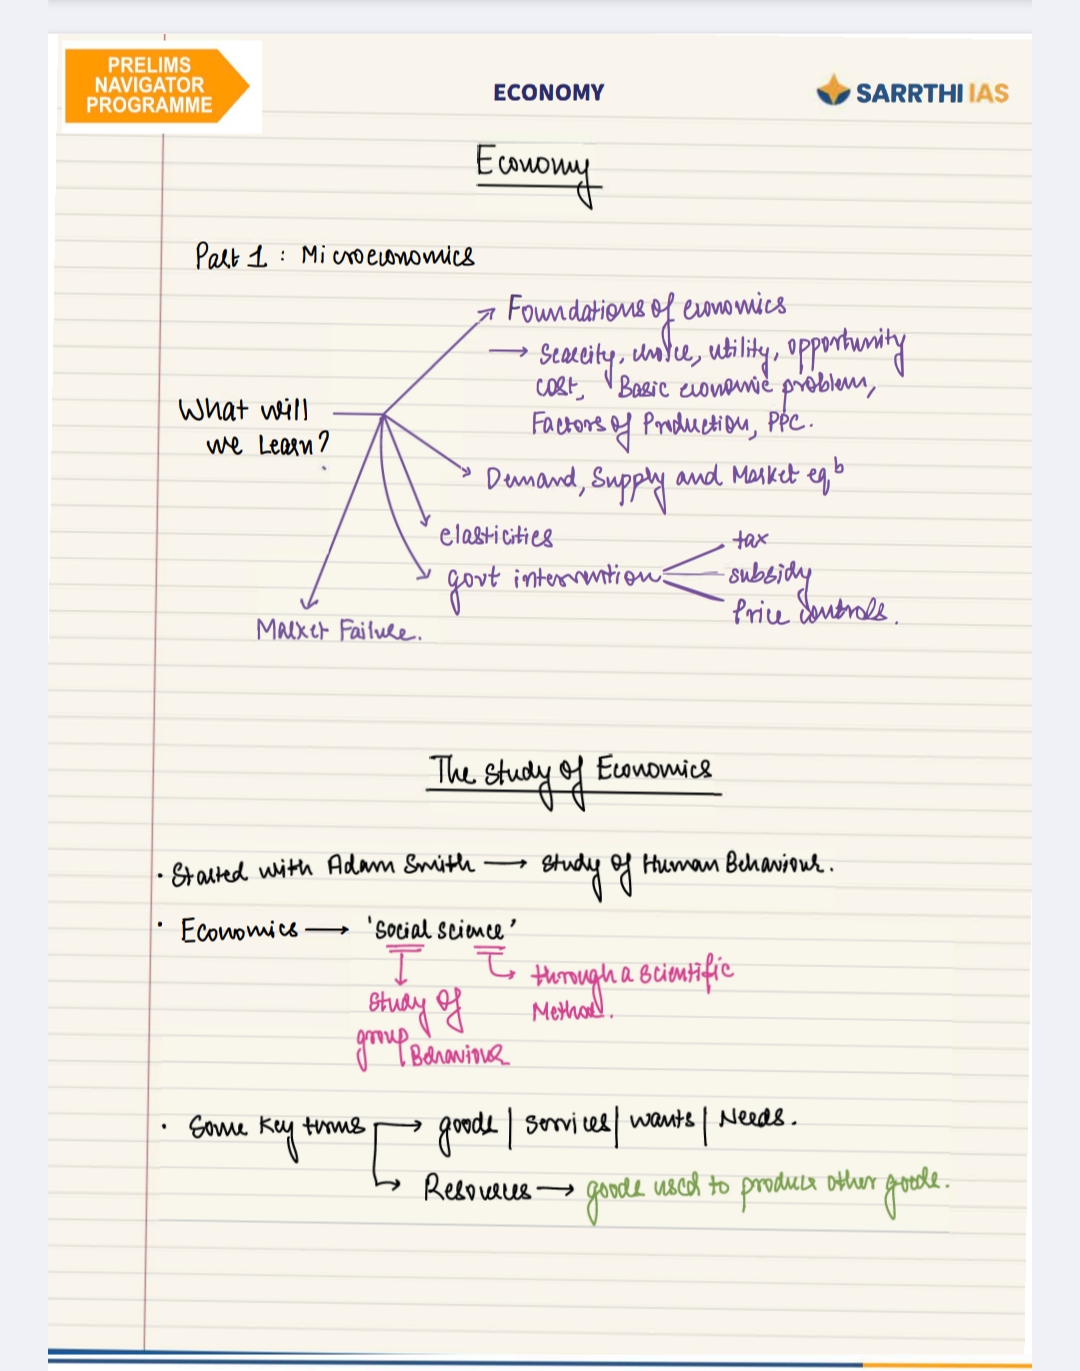 PRELIMS
NAVIGATOR
PROGRAMME
ECONOMY
SARRTHI IAS
Economy
Part 1 : Microeconomics
What will
we Learn?
Foundations of economics
→ Scarcity, choice, utility, opportunity
cost, Basic economic problem,
Factors of Production, PPC.
Demand, Supply and Market eqb
elasticities
govt intervention
tax
subsidy
Price controls.
Market Failure.
The Study of Economics
· Started with Adam Smith → Study of Human Behaviour.
· Economics → 'Social science'
through a scientific
Method.
Study of
group Behaviour
· Some key terms → goods | services | wants | Needs.
→ Resources → goods used to produce other goods.